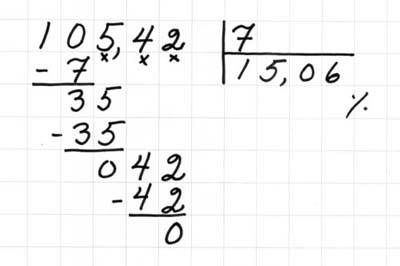 105,42 7
- 7 15,06
35 ٪
-35
042
-42
0